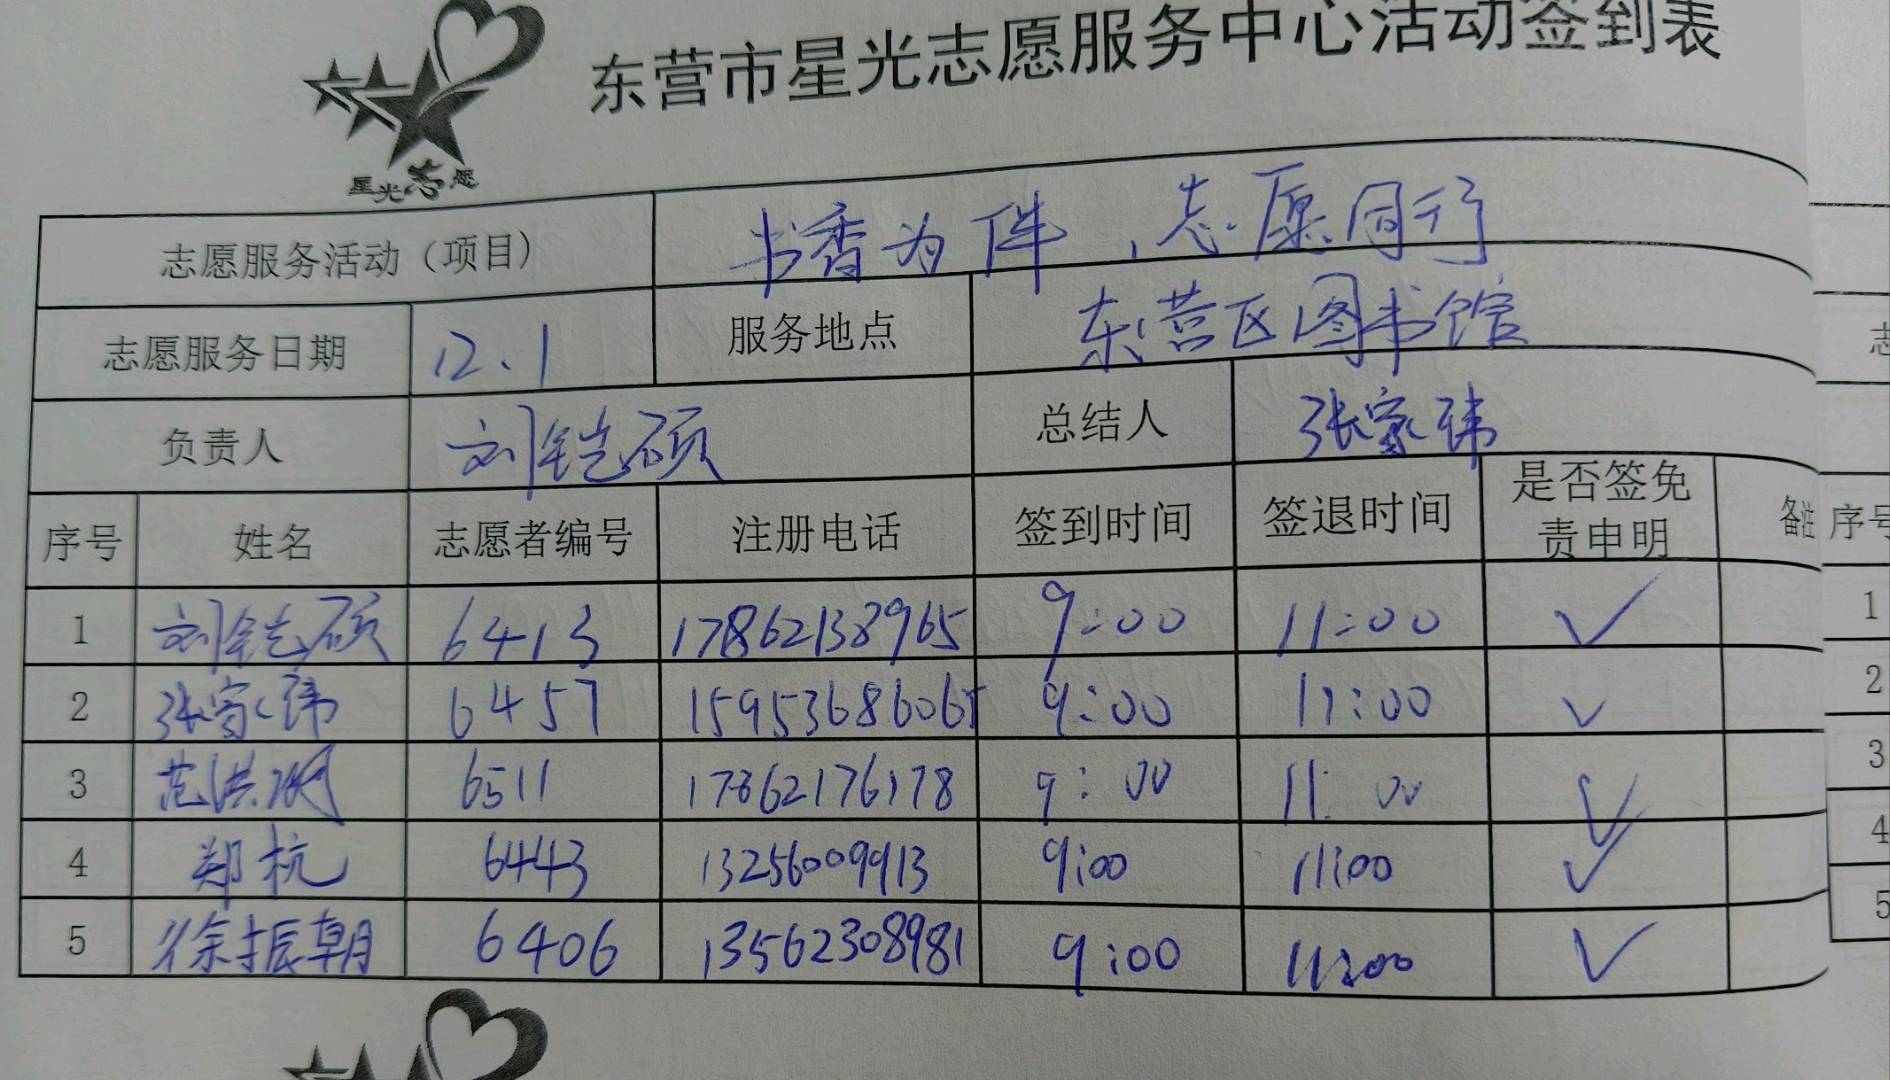 东营市星光志愿服务中心活动签到表
星光志愿
志愿服务活动（项目） 书香为伴，志愿同行
志愿服务日期 12.1 服务地点 东营区图书馆
负责人 刘铠硕 总结人 张家玮
序号 姓名 志愿者编号 注册电话 签到时间 签退时间 是否签免责申明 备注
1 刘铠硕 6413 17862138965 9:00 11:00 ✓
2 张家玮 6457 15953686065 9:00 11:00 ✓
3 范洪 6511 17862176178 9:00 11:00 ✓
4 郑杭 6443 13256009913 9:00 11:00 ✓
5 徐振朝 6406 13562308981 9:00 11:00 ✓
志
序号
1
2
3
4
5